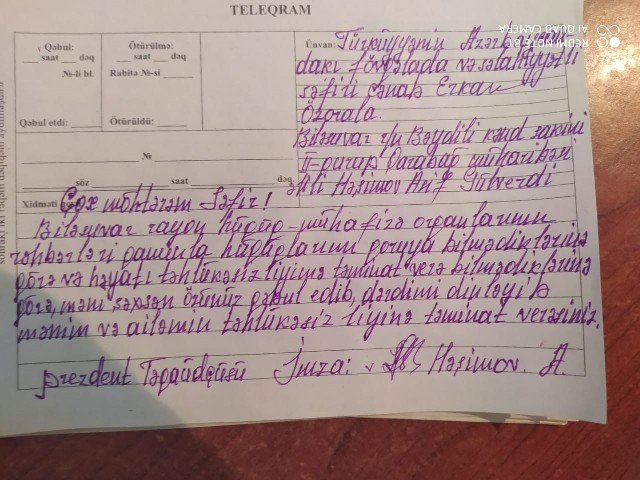 TELEQRAM
Qəbul:
saat dəq
Ötürülmə:
saat dəq
№-li bl.
Rabitə №-si
Qəbul etdi:
Ötürüldü:
Ünvan: Türkiyyənin Azərbaycan
dakı fövqəladə və səlahiyyətli
səfiri cənab Erkan
Özorala.
Biləsuvar r/u Bəydili kənd sakini
II-qurup Qarabağ müharibəsi
əlili Həşimov Arif Gülverdi
№
söz saat dəq
Xidməti
Çox möhtərəm Səfir!
Biləsuvar rayon hüquq-mühafizə orqanlarının
rəhbərləri qanunla hüquqlarımı qoruya bilmədiklərinə
görə və həyatı təhlükəsizliyimə təminat verə bilmədiklərinə
görə, məni şəxsən özünüz qəbul edib, dərdimi dinləyib
mənim və ailəmin təhlükəsizliyinə təminat verəsiniz.
prezdent Təqaüdçüsü İmza: Həşimov. A.
REDMI NOTE 8T
AI QUAD CAMERA